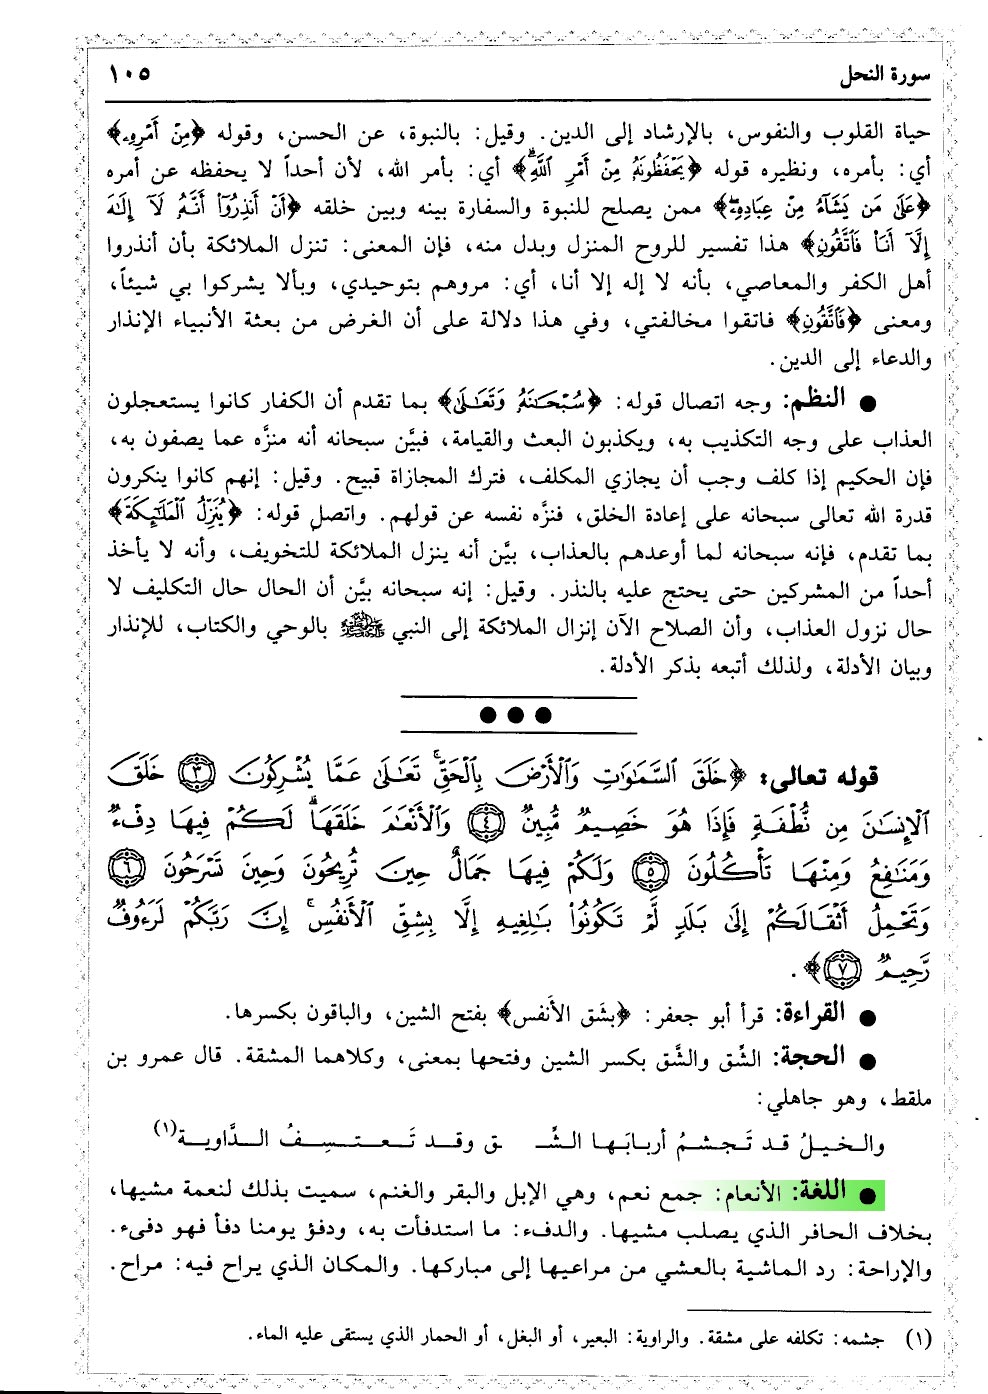 سورة النحل ١٠٥
حياة القلوب والنفوس، بالإرشاد إلى الدين. وقيل: بالنبوة، عن الحسن، وقوله ﴿مِنْ أَمْرِهِۦ﴾
أي: بأمره، ونظيره قوله ﴿يَحْفَظُونَهُۥ مِنْ أَمْرِ ٱللَّهِۗ﴾ أي: بأمر الله، لأن أحداً لا يحفظه عن أمره
﴿عَلَىٰ مَن يَشَآءُ مِنْ عِبَادِهِۦٓ﴾ ممن يصلح للنبوة والسفارة بينه وبين خلقه ﴿أَنْ أَنذِرُوٓا۟ أَنَّهُۥ لَآ إِلَٰهَ
إِلَّآ أَنَا۠ فَٱتَّقُونِ﴾ هذا تفسير للروح المنزل وبدل منه، فإن المعنى: تنزل الملائكة بأن أنذروا
أهل الكفر والمعاصي، بأنه لا إله إلا أنا، أي: مروهم بتوحيدي، وبألا يشركوا بي شيئاً،
ومعنى ﴿فَٱتَّقُونِ﴾ فاتقوا مخالفتي، وفي هذا دلالة على أن الغرض من بعثة الأنبياء الإنذار
والدعاء إلى الدين.
● النظم: وجه اتصال قوله: ﴿سُبْحَٰنَهُۥ وَتَعَٰلَىٰ﴾ بما تقدم أن الكفار كانوا يستعجلون
العذاب على وجه التكذيب به، ويكذبون البعث والقيامة، فبيَّن سبحانه أنه منزَّه عما يصفون به،
فإن الحكيم إذا كلف وجب أن يجازي المكلف، فترك المجازاة قبيح. وقيل: إنهم كانوا ينكرون
قدرة الله تعالى سبحانه على إعادة الخلق، فنزَّه نفسه عن قولهم. واتصل قوله: ﴿يُنَزِّلُ ٱلْمَلَٰٓئِكَةَ﴾
بما تقدم، فإنه سبحانه لما أوعدهم بالعذاب، بيَّن أنه ينزل الملائكة للتخويف، وأنه لا يأخذ
أحداً من المشركين حتى يحتج عليه بالنذر. وقيل: إنه سبحانه بيَّن أن الحال حال التكليف لا
حال نزول العذاب، وأن الصلاح الآن إنزال الملائكة إلى النبي بالوحي والكتاب، للإنذار
وبيان الأدلة، ولذلك أتبعه بذكر الأدلة.
قوله تعالى: ﴿خَلَقَ ٱلسَّمَٰوَٰتِ وَٱلْأَرْضَ بِٱلْحَقِّۚ تَعَٰلَىٰ عَمَّا يُشْرِكُونَ ٣ خَلَقَ
ٱلْإِنسَٰنَ مِن نُّطْفَةٍ فَإِذَا هُوَ خَصِيمٌ مُّبِينٌ ٤ وَٱلْأَنْعَٰمَ خَلَقَهَاۗ لَكُمْ فِيهَا دِفْءٌ
وَمَنَٰفِعُ وَمِنْهَا تَأْكُلُونَ ٥ وَلَكُمْ فِيهَا جَمَالٌ حِينَ تُرِيحُونَ وَحِينَ تَسْرَحُونَ ٦
وَتَحْمِلُ أَثْقَالَكُمْ إِلَىٰ بَلَدٍ لَّمْ تَكُونُوا۟ بَٰلِغِيهِ إِلَّا بِشِقِّ ٱلْأَنفُسِۚ إِنَّ رَبَّكُمْ لَرَءُوفٌ
رَّحِيمٌ ٧﴾.
● القراءة: قرأ أبو جعفر: ﴿بشَق الأنفس﴾ بفتح الشين، والباقون بكسرها.
● الحجة: الشِّق والشَّق بكسر الشين وفتحها بمعنى، وكلاهما المشقة. قال عمرو بن
ملقط، وهو جاهلي:
والخيلُ قد تَجشمُ أربابَها الشِّـ ـق وقد تَعتسِفُ الدَّاوية(١)
● اللغة: الأنعام: جمع نعم، وهي الإبل والبقر والغنم، سميت بذلك لنعمة مشيها،
بخلاف الحافر الذي يصلب مشيها. والدفء: ما استدفأت به، ودفؤ يومنا دفأ فهو دفيء.
والإراحة: رد الماشية بالعشي من مراعيها إلى مباركها. والمكان الذي يراح فيه: مراح.
(١) جشمه: تكلفه على مشقة. والراوية: البعير، أو البغل، أو الحمار الذي يستقى عليه الماء.